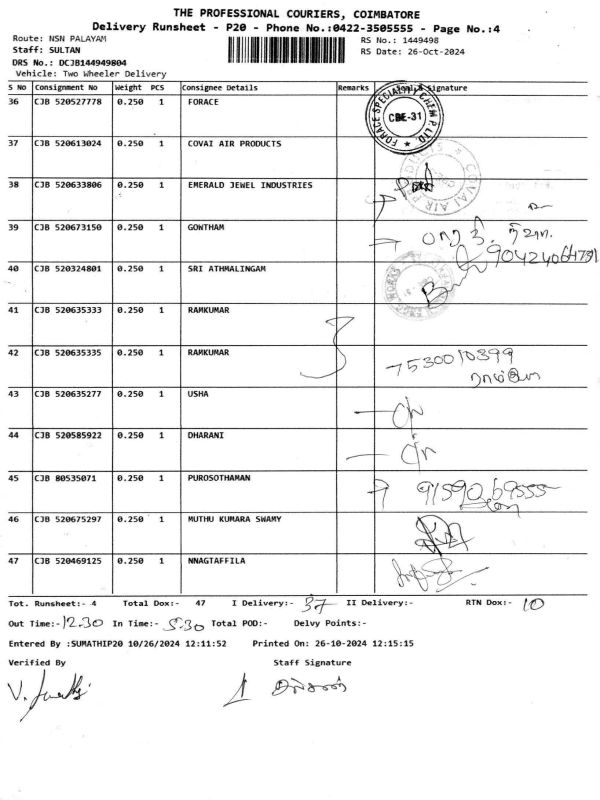 THE PROFESSIONAL COURIERS, COIMBATORE
Delivery Runsheet - P20 - Phone No.:0422-3505555 - Page No.:4
Route: NSN PALAYAM RS No.: 1449498
Staff: SULTAN RS Date: 26-Oct-2024
DRS No.: DCJB144949804
Vehicle: Two Wheeler Delivery
S No Consignment No Weight PCS Consignee Details Remarks Signature
36 CJB 520527778 0.250 1 FORACE
FORACE SPECIALITY CHEM P. LTD. CBE-31
37 CJB 520613024 0.250 1 COVAI AIR PRODUCTS
COVAI AIR
38 CJB 520633806 0.250 1 EMERALD JEWEL INDUSTRIES
39 CJB 520673150 0.250 1 GONTHAM
40 CJB 520324801 0.250 1 SRI ATHMALINGAM
41 CJB 520635333 0.250 1 RAMKUMAR
42 CJB 520635335 0.250 1 RAMKUMAR 7530010399
43 CJB 520635277 0.250 1 USHA
44 CJB 520585922 0.250 1 DHARANI
45 CJB 80535071 0.250 1 PUROSOTHAMAN 9159069555
46 CJB 520675297 0.250 1 MUTHU KUMARA SWAMY
47 CJB 520469125 0.250 1 NNAGTAFFILA
Tot. Runsheet:- 4 Total Dox:- 47 I Delivery:- 37 II Delivery:- RTN Dox:- 10
Out Time:- 12.30 In Time:- 5.30 Total POD:- Delvy Points:-
Entered By :SUMATHIP20 10/26/2024 12:11:52 Printed On: 26-10-2024 12:15:15
Verified By Staff Signature